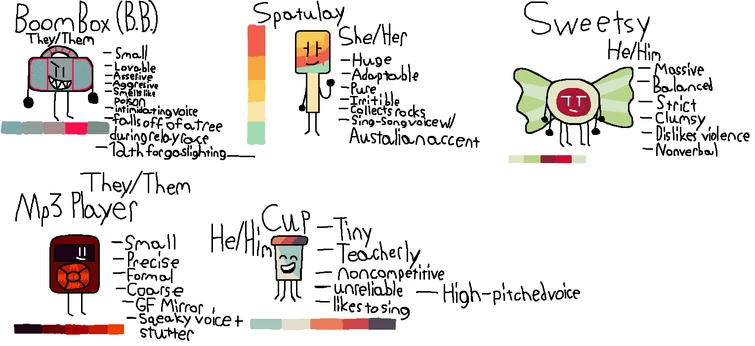 BoomBox (B.B.)
They/Them
Small
Lovable
Assertive
Aggresive
Smells like
poison
intimidating voice
falls off of a tree
during relay race
Path for gaslighting
Spatulay
She/Her
Huge
Adaptable
Pure
Irritible
Collects rocks
Sing-Song voice w/
Australian accent
Sweetsy
He/Him
Massive
Balanced
Strict
Clumsy
Dislikes violence
Nonverbal
They/Them
Mp3 Player
Small
Precise
Formal
Coarse
GF Mirror
Sqeaky voice +
stutter
Cup
He/Him
Tiny
Teacherly
noncompetitive
unreliable
likes to sing
High-pitched voice